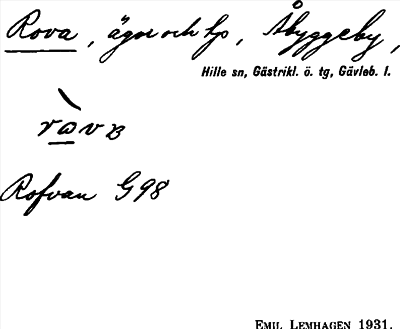 Rova, ägor och lp, Åbyggeby,
Hille sn, Gästrikl. ö. tg, Gävleb. l.
Rofvan G98
EMIL LEMHAGEN 1931.